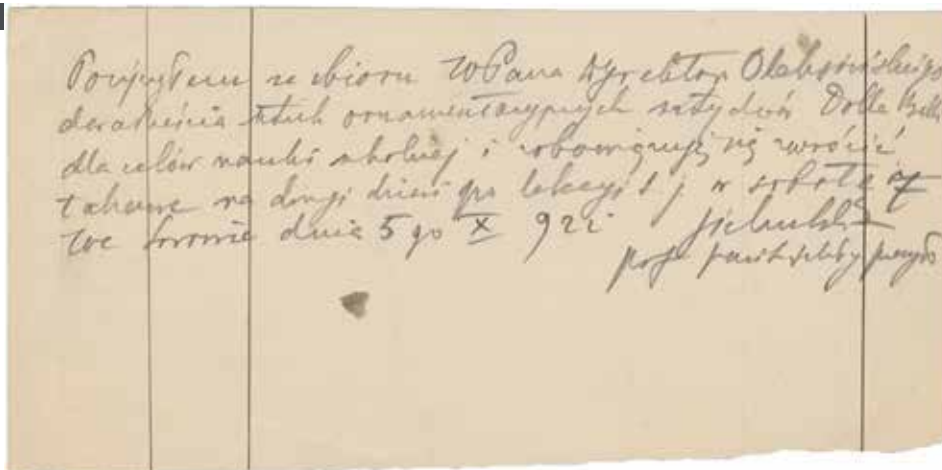 Pożyczyłem ze zbioru WPana Dyrektor Oleksińskiego
dziesięcia sztuk ornamentacyjnych sztychów Della Bella
dla celów nauki szkolnej i zobowiązuję się zwrócić
takowe na drugi dzień po lekcyi t j w sobotę 7
We Lwowie dnia 5 go X 922
prof państ szkoły przem